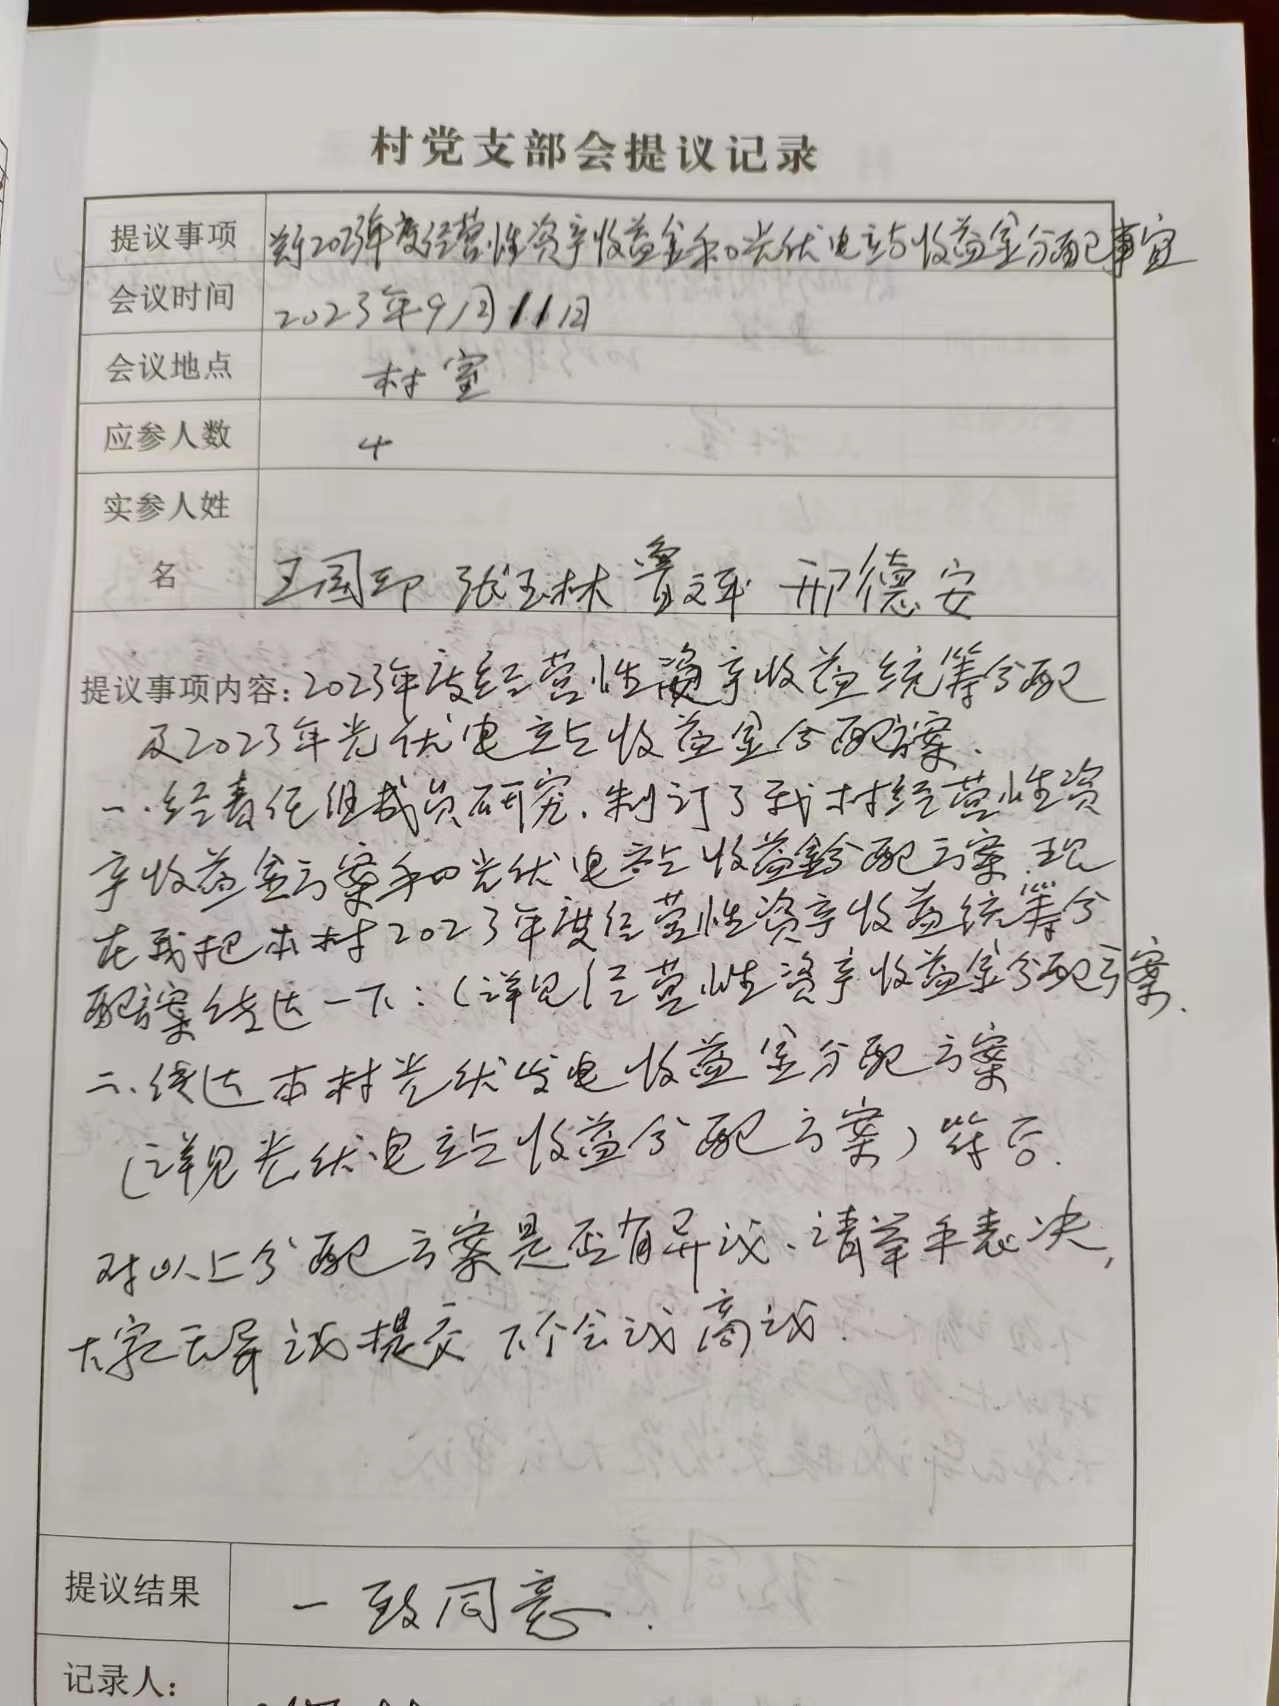 村党支部会提议记录
提议事项 关于2023年度经营性资产收益金和光伏电站收益金分配事宜
会议时间 2023年9月11日
会议地点 村室
应参人数 4
实参人姓
名 王国印 张玉林 鲁文军 邢德安
提议事项内容：2023年度经营性资产收益统筹分配
及2023年光伏电站收益金分配方案.
一.经责任组成员研究.制订了我村经营性资
产收益金方案和光伏电站收益金分配方案.现
在我把本村2023年度经营性资产收益统筹分
配方案传达一下：（详见经营性资产收益金分配方案.
二.传达本村光伏发电收益金分配方案
（详见光伏电站收益分配方案）
对以上分配方案是否有异议、请举手表决,
大家无异议提交下个会议商议.
提议结果 一致同意.
记录人：